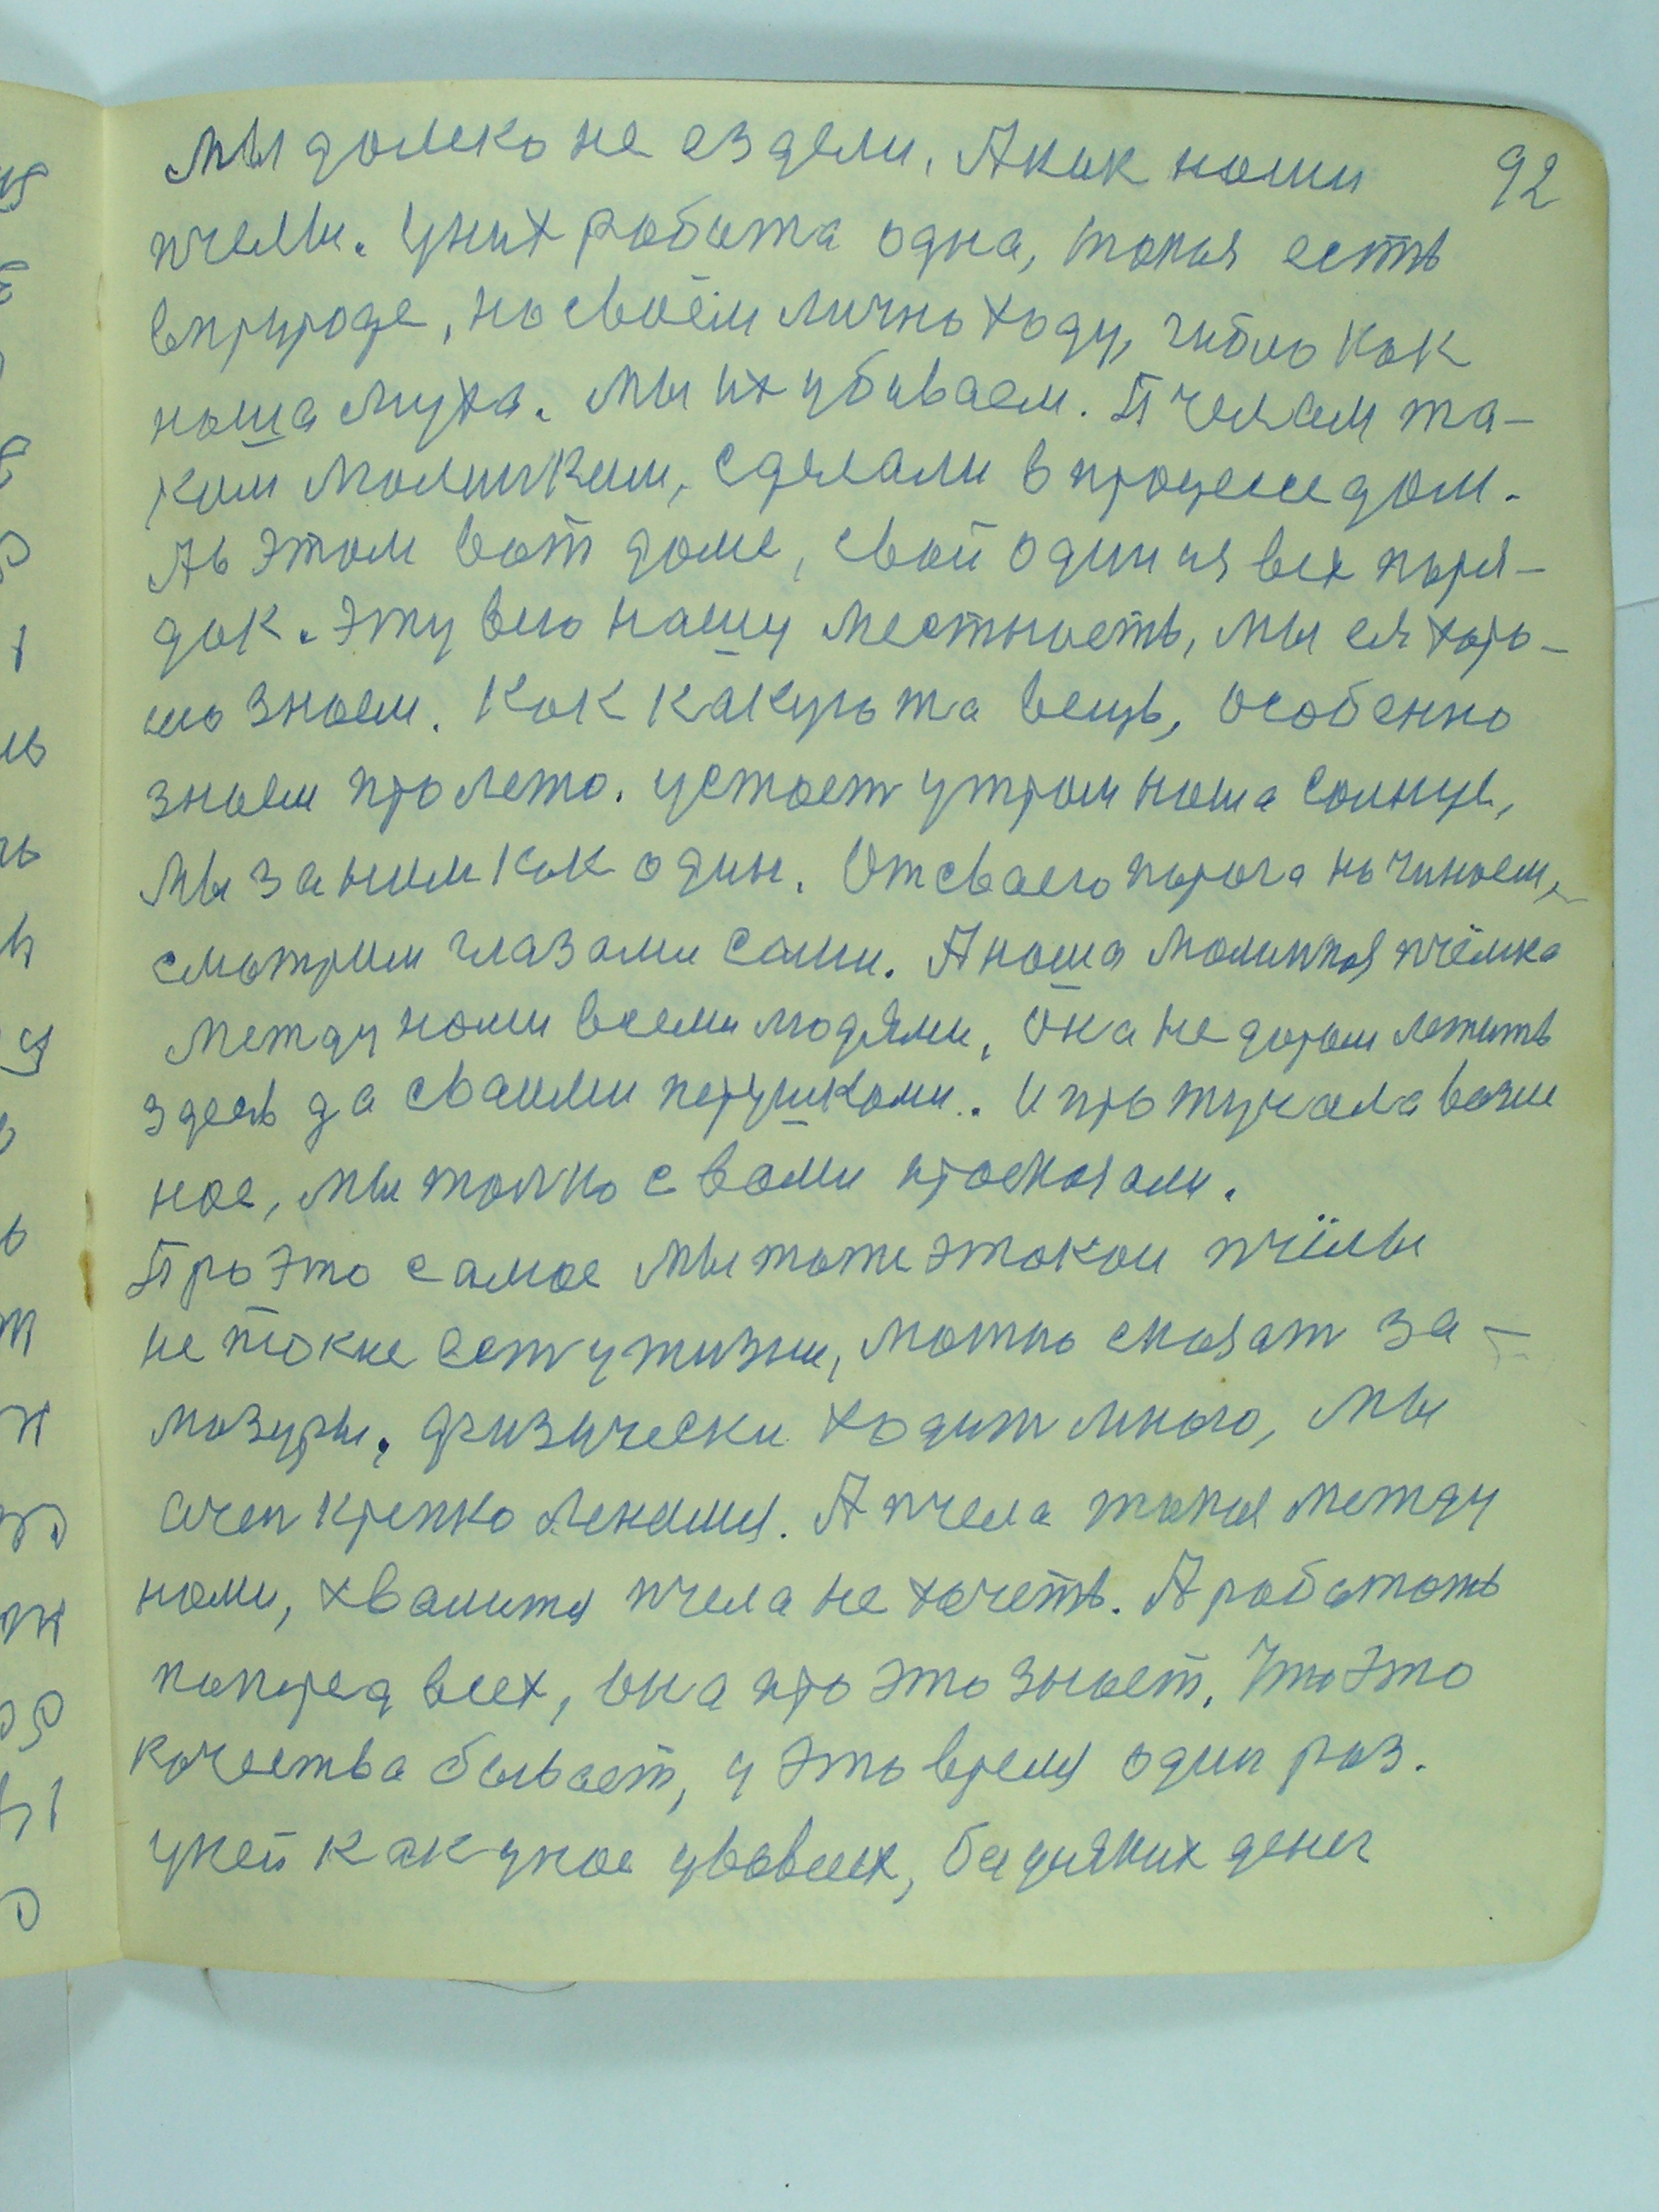 92
Мы далеко не ездели. А как наши
пчелы. У них работа одна, такая есть
в природе, на своём лично ходу,
наша муха. Мы их убиваем. Пчелам та-
ким маленким, сделали в процессе дом.
А в этом вот доме, свой один из всех поря-
док. Эту всю нашу местность, мы ея харо-
шо знаем. Как какую та вещь, особенно
знаем про лето. Устает утром наша солнце,
мы за ним как один. От сваего порога начинаем,
смотрим глазами сами. А наша маленкая пчёлка
между нами всеми людями, она не даром летить
здесь да сваими перушками. И про тучала важ
ное, мы толко с вами просказали.
Про это самое мы тоже этакои пчёлы
не такие ест у жизни, можно сказат за-
мазуры. Физически ходит много, мы
очен крепко ленимся. А пчела такая между
нами, хвалится пчела не хочеть. А работать
попред всех, она про это знает. Что это
качества бывает, у это время один раз.
У ней как у нас у вовсех, денег